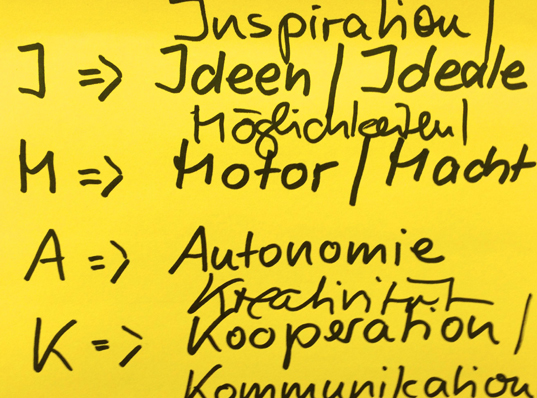 Inspiration/
I => Ideen / Ideale
Möglichkeiten/
M => Motor / Macht
A => Autonomie
Kreativität
K => Kooperation /
Kommunikation